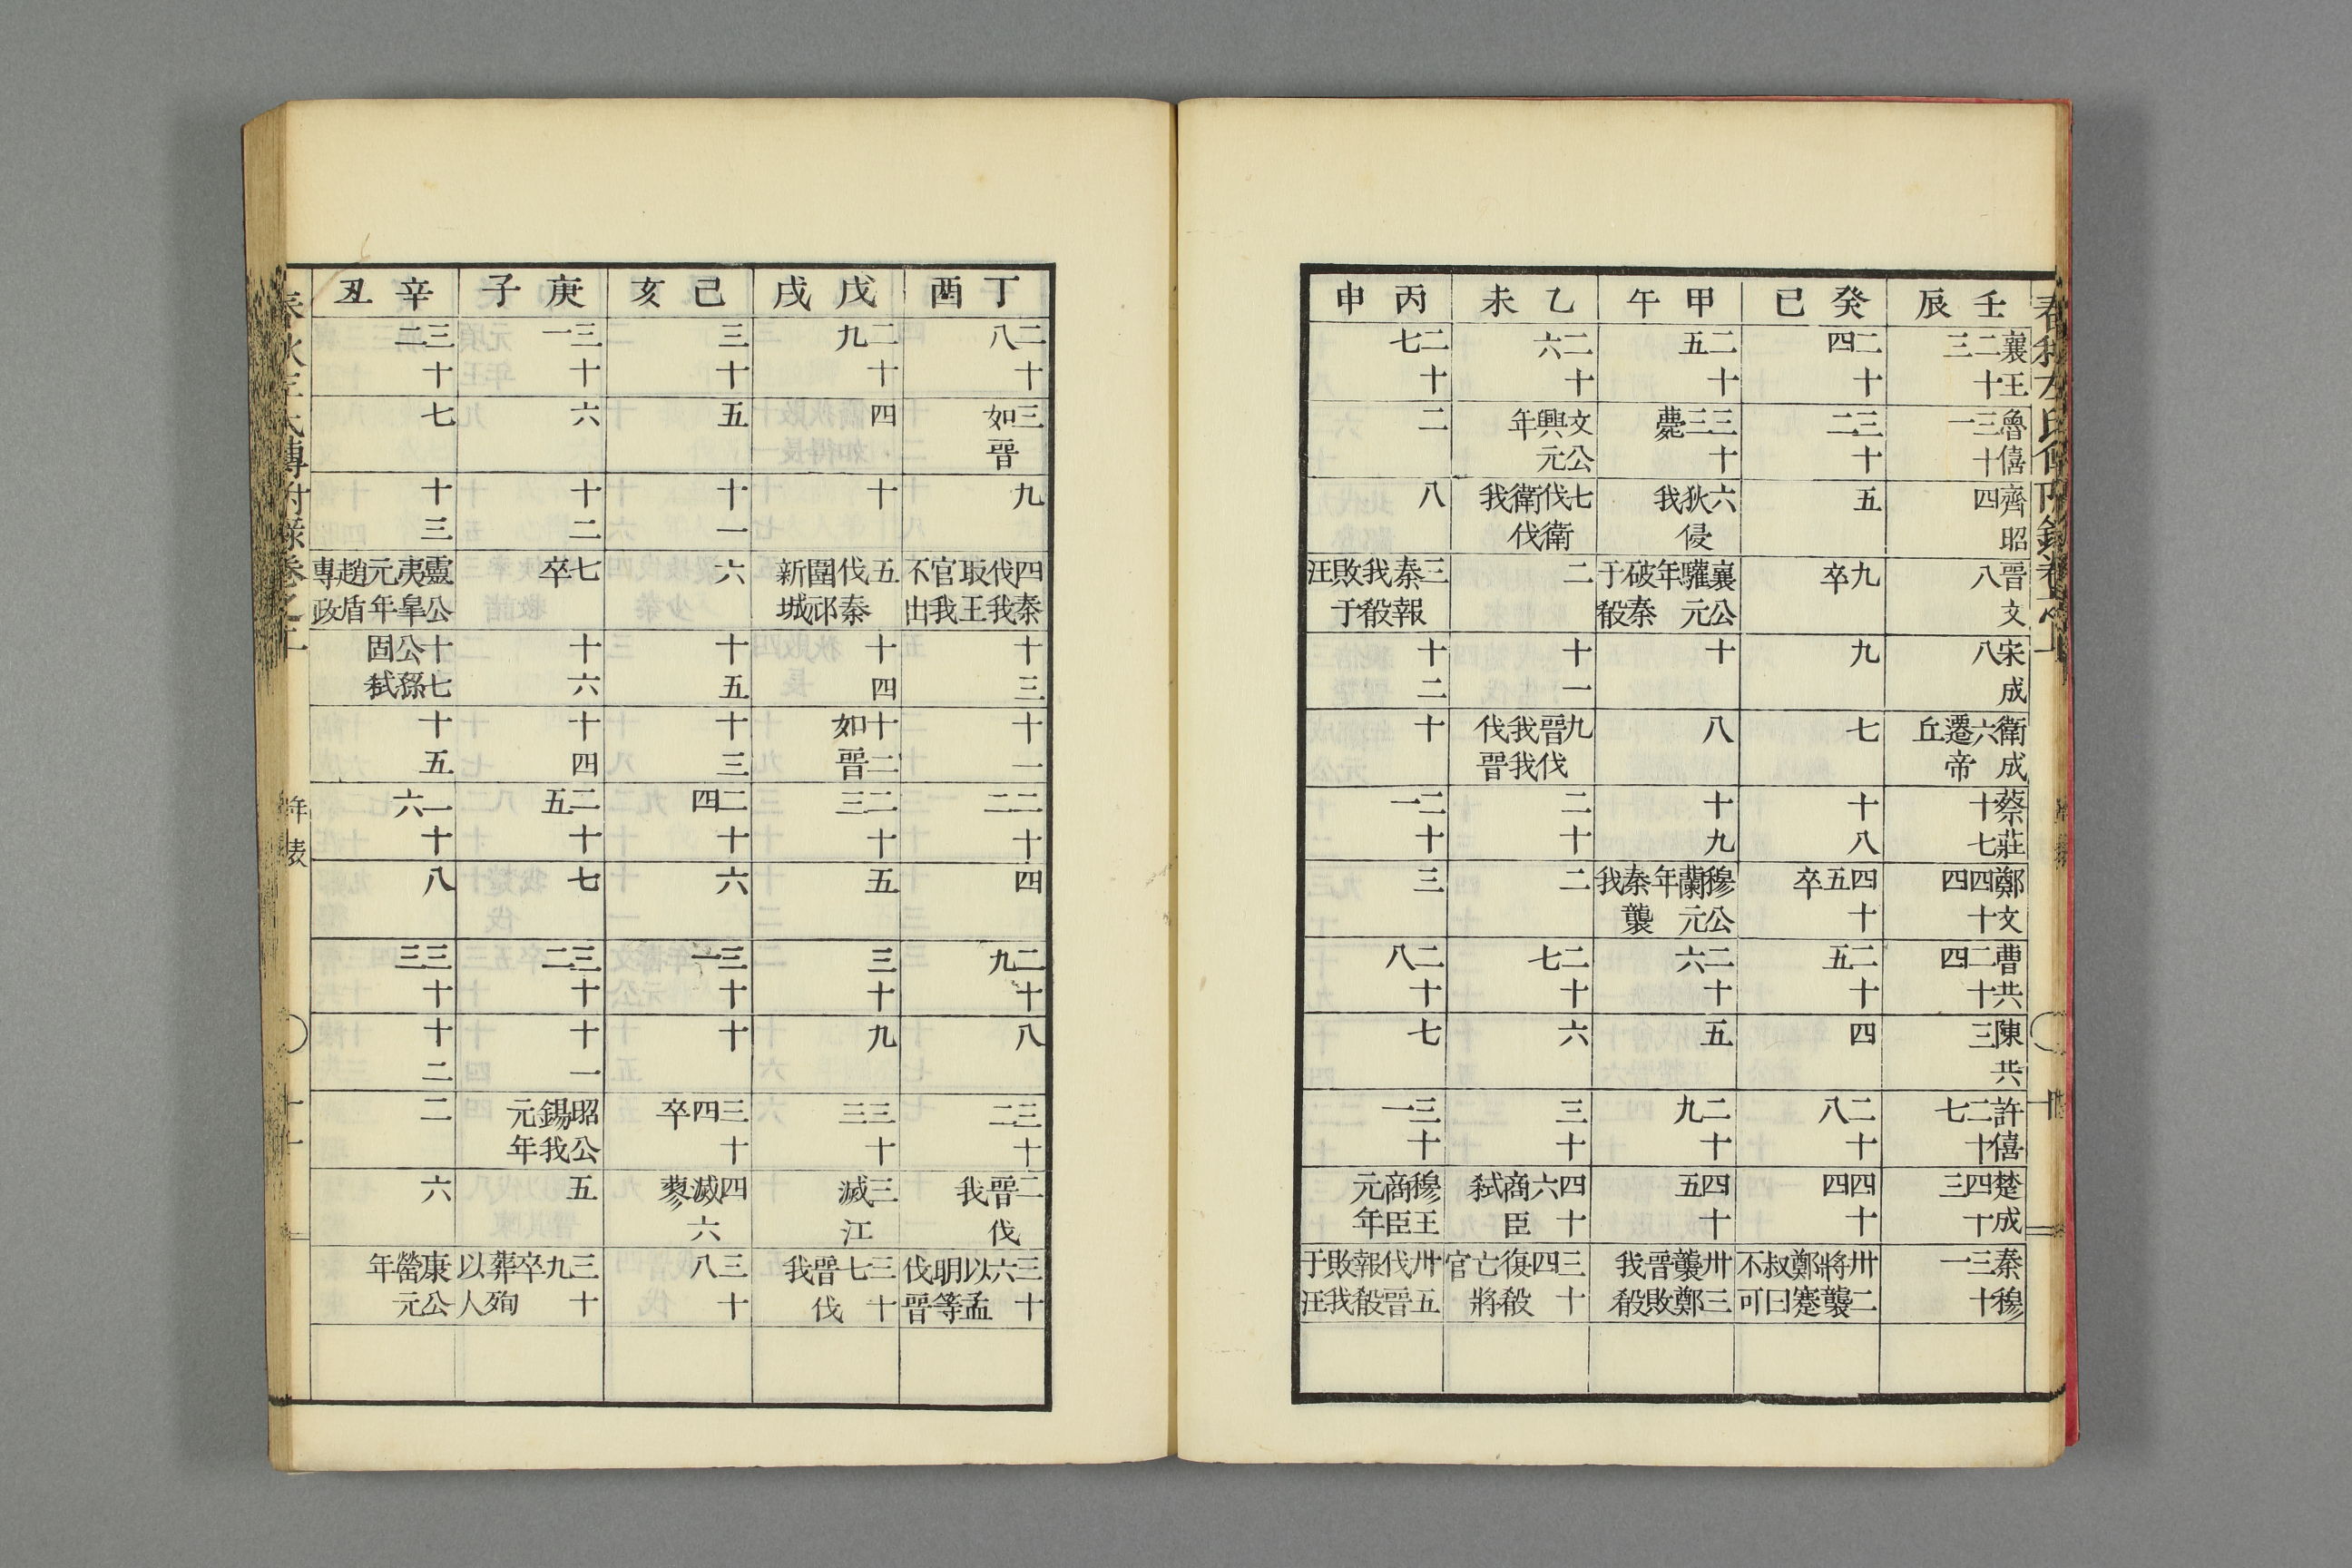 春秋左氏傳附錄卷之十
壬辰
襄王二十三
魯僖三十一
齊昭四
晉文八
宋成八
衛成六遷帝丘
蔡莊十七
鄭文四十四
曹共二十四
陳共三
許僖二十七
楚成四十三
秦穆三十一
癸巳
二十四
三十二
五
九卒
九
七
十八
四十五卒
二十五
四
二十八
四十四
卅二將襲鄭蹇叔曰不可
甲午
二十五
三十三薨
六狄侵我
襄公驩元年破秦于殽
十
八
十九
穆公蘭元年秦襲我
二十六
五
二十九
四十五
卅三襲鄭晉敗我殽
乙未
二十六
文公興元年
七伐衛衛伐我
二
十一
九晉伐我我伐晉
二十
二
二十七
六
三十
四十六商臣弑
三十四復殽亡將官
丙申
二十七
二
八
三秦報我殽敗于汪
十二
十
二十一
三
二十八
七
三十一
穆王商臣元年
卅五伐晉報殽敗我于汪
丁酉
二十八
三如晉
九
四秦伐我取王官我不出
十三
十一
二十二
四
二十九
八
三十二
二晉伐我
三十六以孟明等伐晉
戊戌
二十九
四
十
五伐秦圍邧新城
十四
十二如晉
二十三
五
三十
九
三十三
三滅江
三十七晉伐我
己亥
三十
五
十一
六
十五
十三
二十四
六
三十一
十
三十四卒
四滅六蓼
三十八
庚子
三十一
六
十二
七卒
十六
十四
二十五
七
三十二
十一
昭公錫我元年
五
三十九卒葬殉以人
辛丑
三十二
七
十三
靈公夷皐元年趙盾專政
十七公孫固弑
十五
二十六
八
三十三
十二
二
六
康公罃元年
春秋左氏傳附錄卷之十
年表